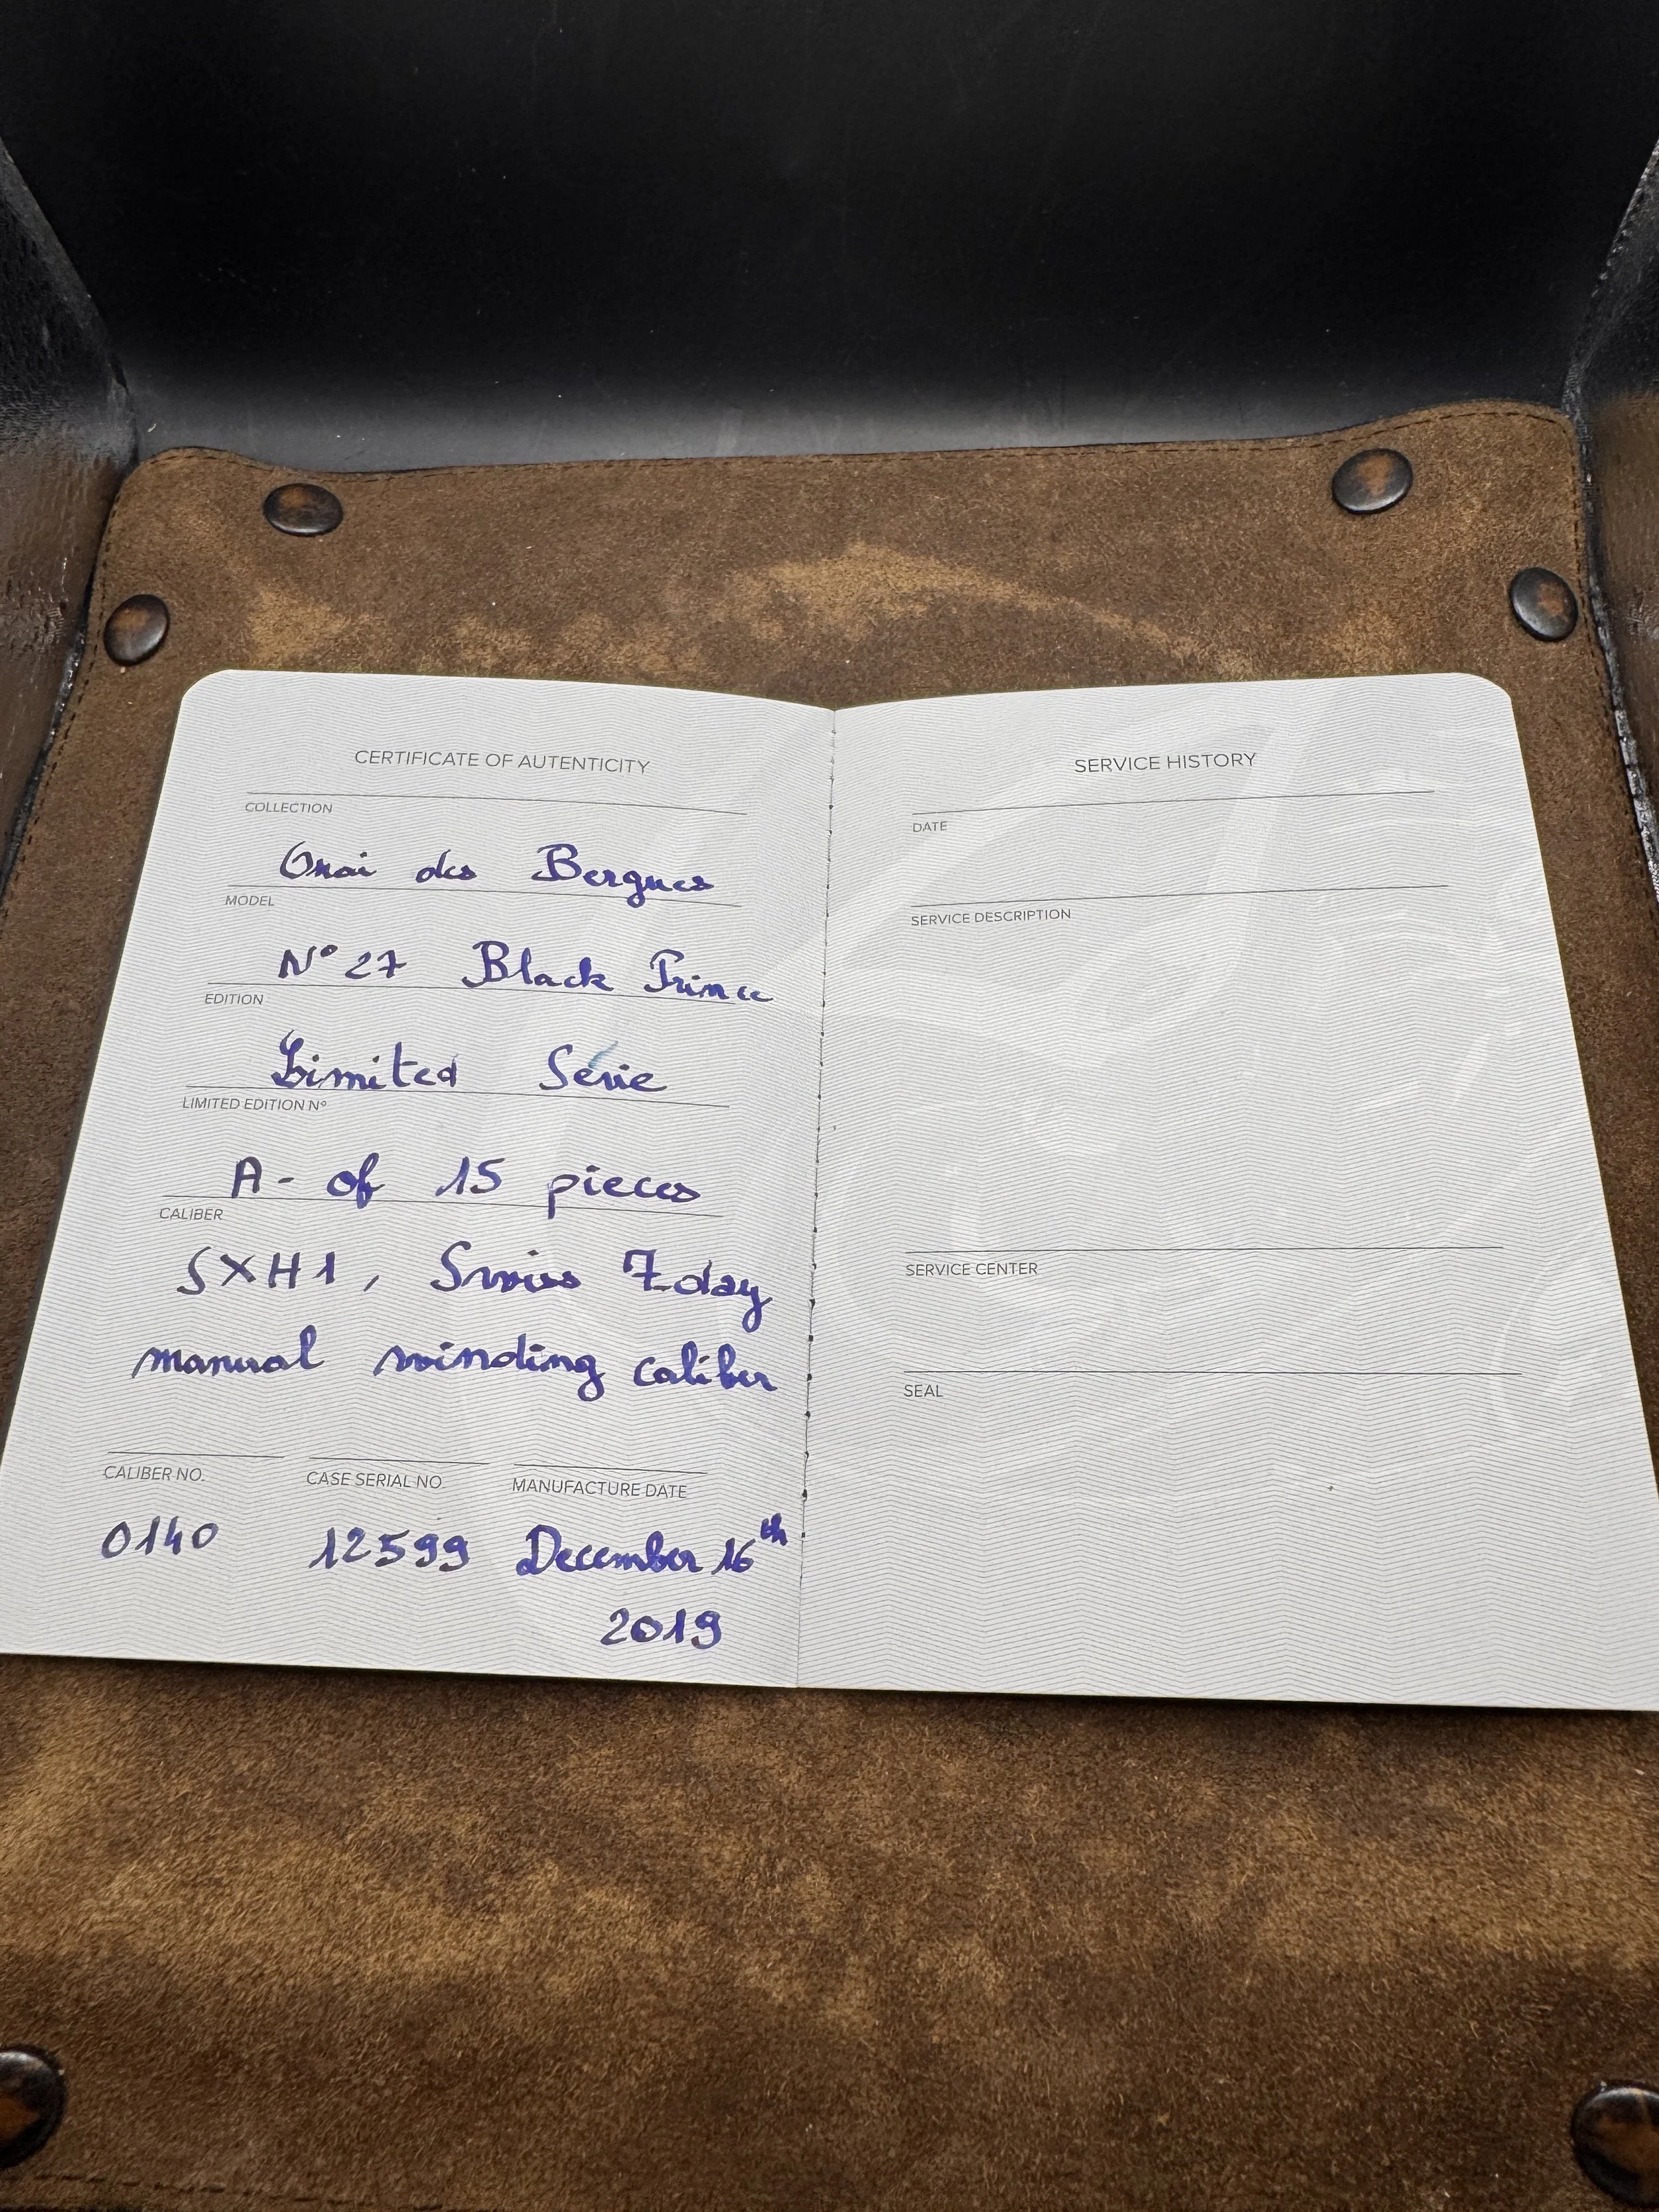 CERTIFICATE OF AUTENTICITY
COLLECTION
Quai des Bergues
MODEL
N° 27 Black Prince
EDITION
Limited Série
LIMITED EDITION Nº
A- of 15 pieces
CALIBER
SXH1, Swiss 7 day
manual winding caliber
CALIBER NO. CASE SERIAL NO. MANUFACTURE DATE
0140 12599 December 16th
2019
SERVICE HISTORY
DATE
SERVICE DESCRIPTION
SERVICE CENTER
SEAL